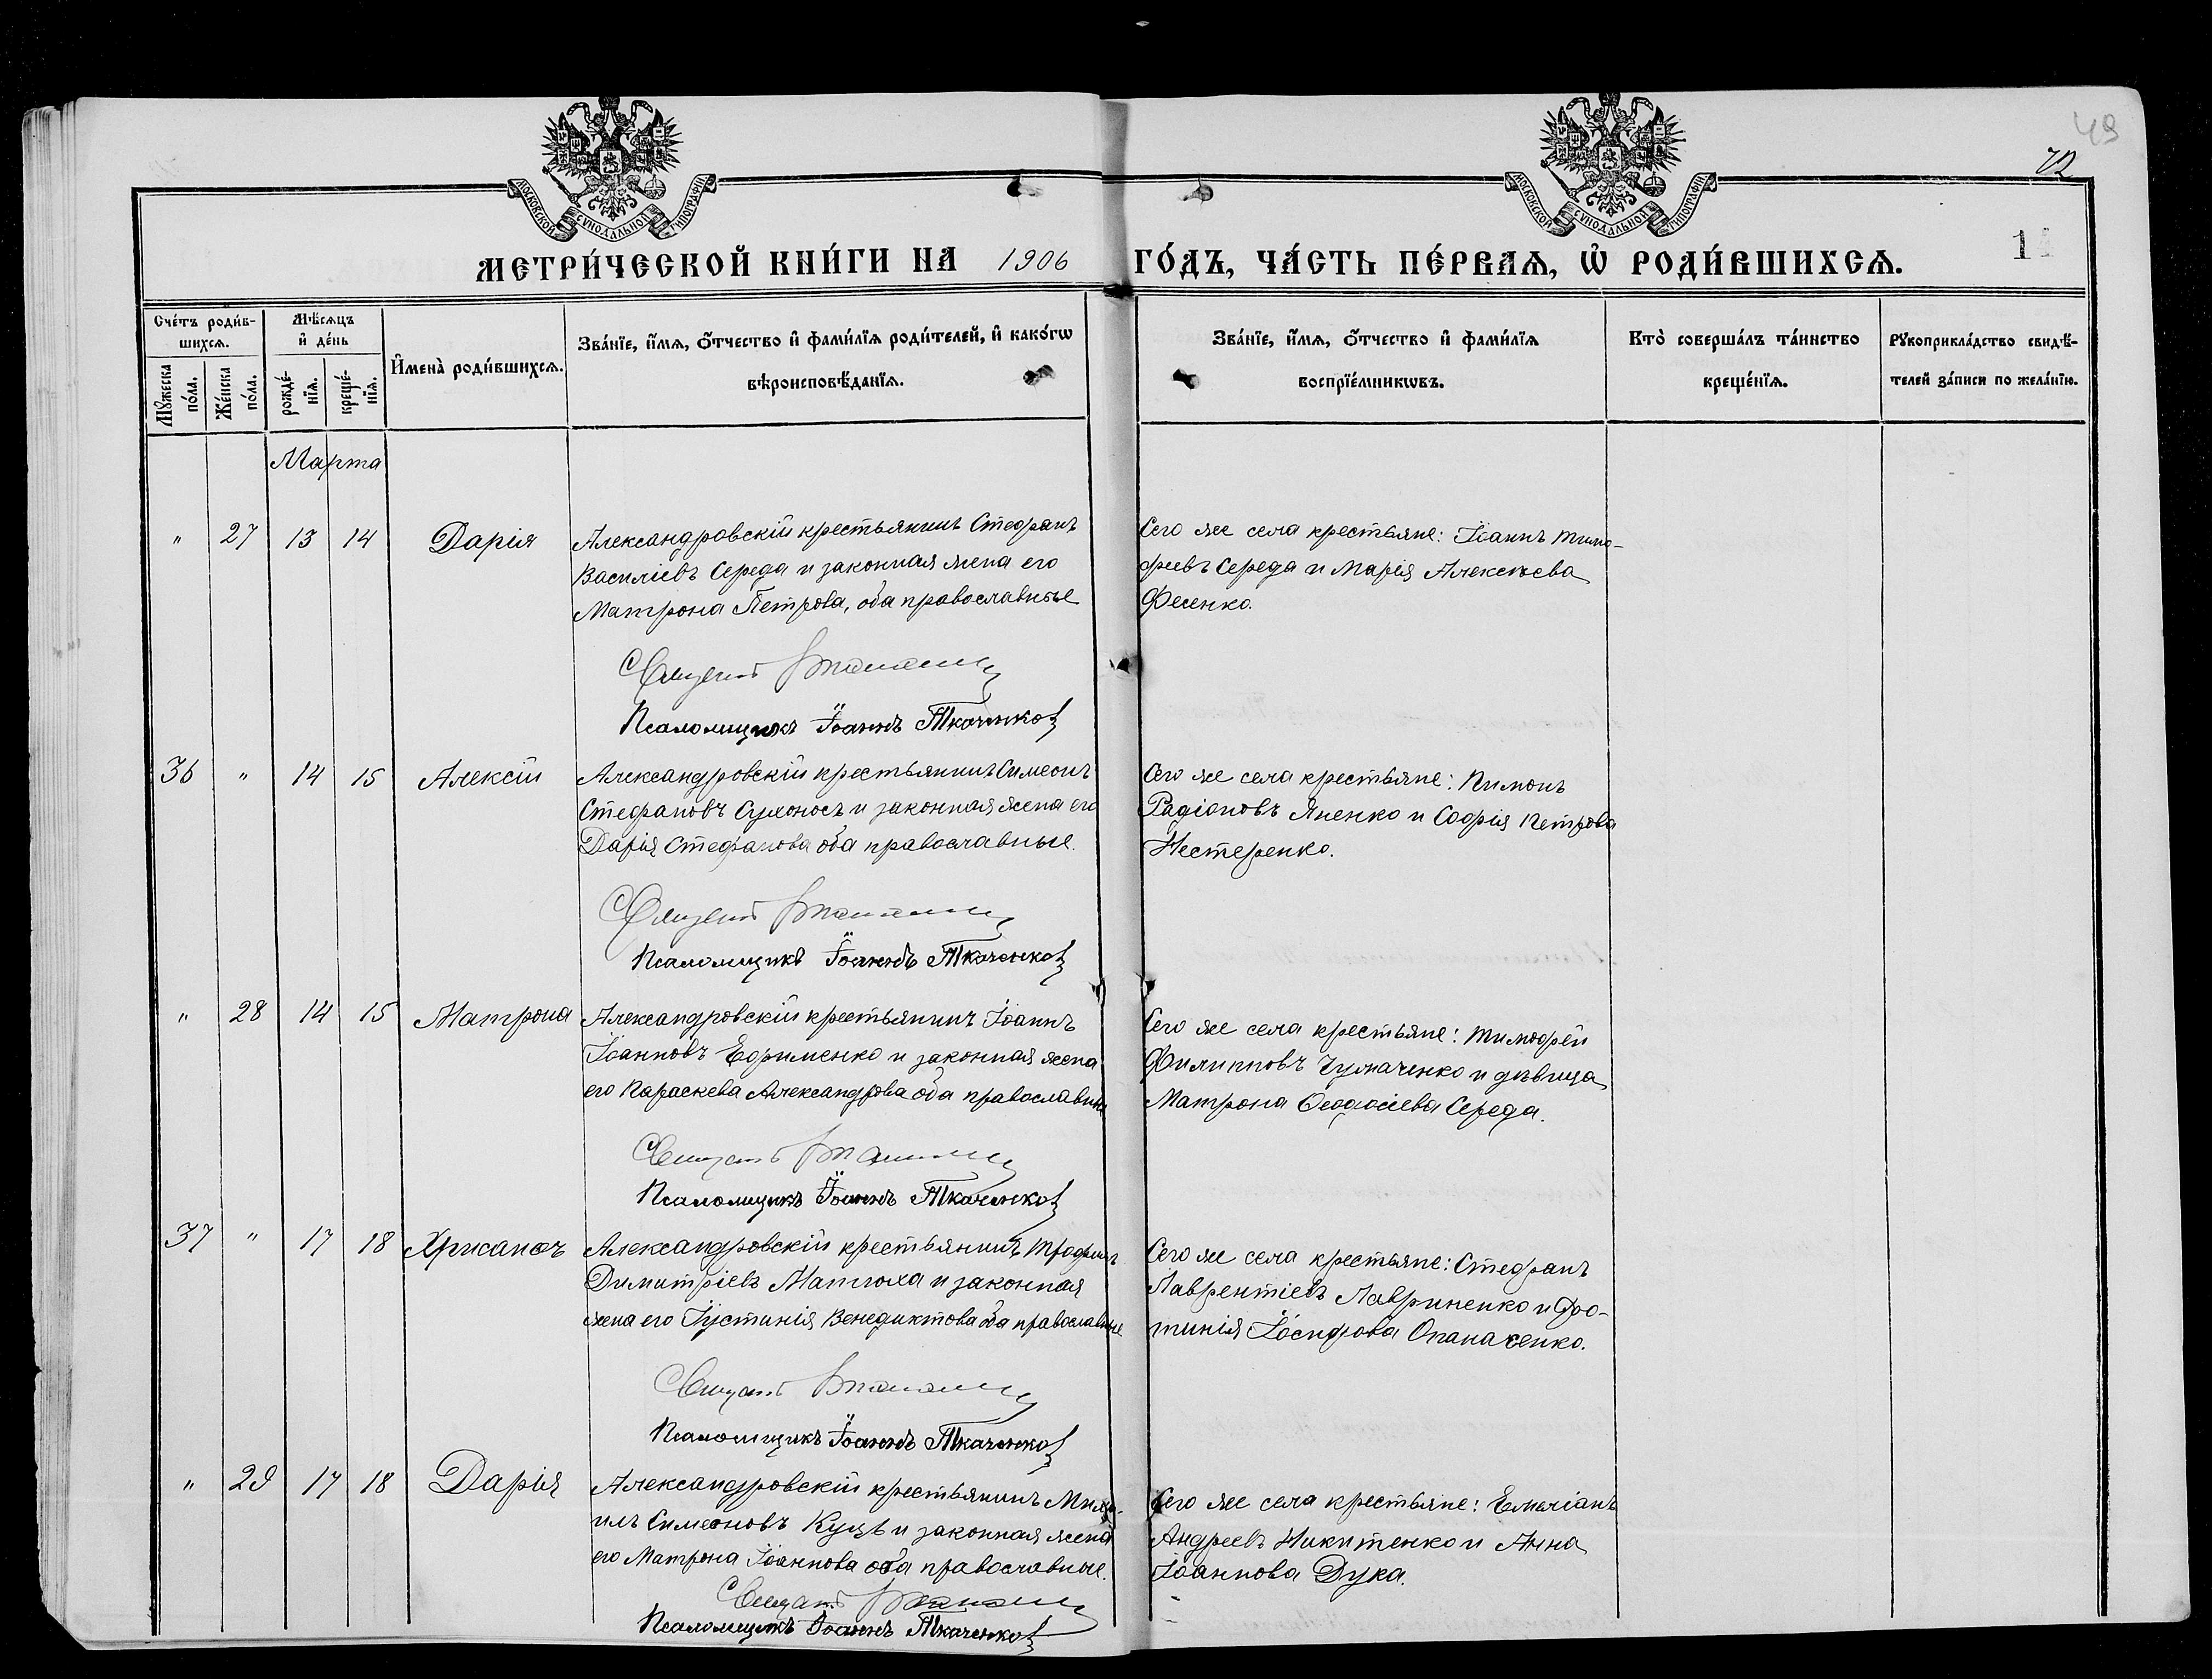 49
72
МОСКОВСКОЙ СѴНОДАЛЬНОЙ ТИПОГРАФІИ
МОСКОВСКОЙ СѴНОДАЛЬНОЙ ТИПОГРАФІИ
МЕТРИ́ЧЕСКОЙ КНИ́ГИ НА 1906 ГО́ДЪ, ЧА́СТЬ ПЕ́РВАЯ, Ѡ҆ РОДИ́ВШИХСЯ.
1
Сче́тъ роди́в-
шихся.
Мѣ́сяцъ
и҆ де́нь
Мꙋ́жеска по́ла.
Же́нска по́ла.
рожде́-нїя.
креще́-нїя.
И҆мена̀ роди́вшихся.
Зва́нїе, и҆́мя, ѻ҆́тчество и҆ фами́лїя роди́телей, и҆ како́гѡ
вѣроисповѣ́данїя.
Зва́нїе, и҆́мя, ѻ҆́тчество и҆ фами́лїя
воспрїе́мникѡвъ.
Кто̀ соверша́лъ та́инство
креще́нїя.
Рꙋкоприкла́дство свидѣ́-
телей за́писи по жела́нїю.
Марта
" 27 13 14 Дарія
Александровскій крестьянинъ Стефанъ
Василіевъ Середа и законная жена его
Матрона Петрова, оба православные
Сего же села крестьяне: Іоаннъ Тимо-
феевъ Середа и Марія Алексѣева
Фесенко.
Псаломщикъ Іоаннъ Ткаченко
36 " 14 15 Алексій
Александровскій крестьянинъ Симеонъ
Стефановъ Сухоносъ и законная жена его
Дарія Стефанова оба православные.
Сего же села крестьяне: Пимонъ
Радіоновъ Яненко и Софія Петрова
Нестеренко.
Псаломщикъ Іоаннъ Ткаченко
" 28 14 15 Матрона
Александровскій крестьянинъ Іоаннъ
Іоанновъ Ефименко и законная жена
его Параскева Александрова оба православные
Сего же села крестьяне: Тимофей
Филипповъ Чумаченко и дѣвица
Матрона Ѳеодосіева Середа.
Псаломщикъ Іоаннъ Ткаченко
37 " 17 18 Хрисанфъ
Александровскій крестьянинъ Трофимъ
Димитріевъ Матюха и законная
жена его Іустинія Венедиктова оба православные
Сего же села крестьяне: Стефанъ
Лаврентіевъ Лавриненко и Фо-
тинія Іосифова Опанасенко.
Псаломщикъ Іоаннъ Ткаченко
" 29 17 18 Дарія
Александровскій крестьянинъ Миха-
илъ Симеоновъ Куцъ и законная жена
его Матрона Іоаннова оба православные.
Сего же села крестьяне: Емиліанъ
Андреевъ Никитенко и Анна
Іоаннова Дука.
Псаломщикъ Іоаннъ Ткаченко